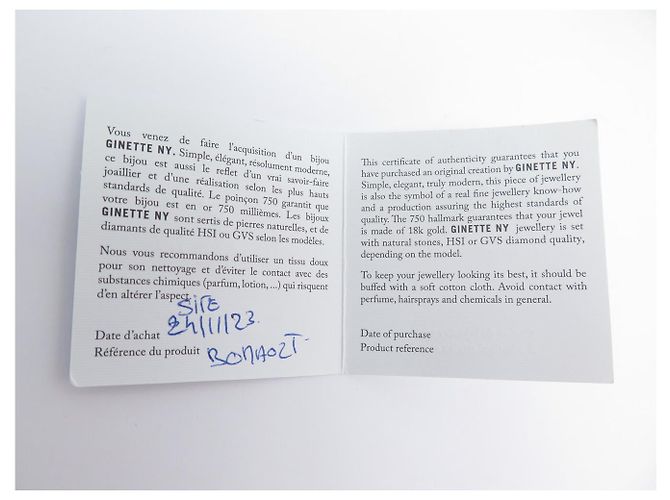 Vous venez de faire l'acquisition d'un bijou
GINETTE NY. Simple, élégant, résolument moderne,
ce bijou est aussi le reflet d'un vrai savoir-faire
joaillier et d'une réalisation selon les plus hauts
standards de qualité. Le poinçon 750 garantit que
votre bijou est en or 750 millièmes. Les bijoux
GINETTE NY sont sertis de pierres naturelles, et de
diamants de qualité HSI ou GVS selon les modèles.
Nous vous recommandons d'utiliser un tissu doux
pour son nettoyage et d'éviter le contact avec des
substances chimiques (parfum, lotion, ...) qui risquent
d'en altérer l'aspect.
SITE
Date d'achat 24/1/23
Référence du produit
This certificate of authenticity guarantees that you
have purchased an original creation by GINETTE NY.
Simple, elegant, truly modern, this piece of jewellery
is also the symbol of a real fine jewellery know-how
and a production assuring the highest standards of
quality. The 750 hallmark guarantees that your jewel
is made of 18k gold. GINETTE NY jewellery is set
with natural stones, HSI or GVS diamond quality,
depending on the model.
To keep your jewellery looking its best, it should be
buffed with a soft cotton cloth. Avoid contact with
perfume, hairsprays and chemicals in general.
Date of purchase
Product reference